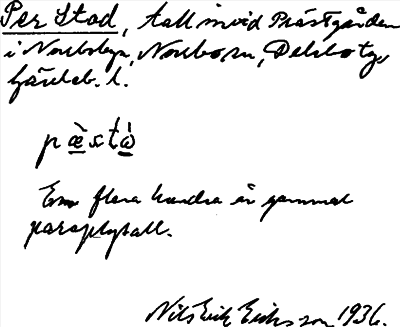 Per Stad, tall invid Prästgården
i Norrbobyn, Norrbo sn, Delsbo tg,
Gävleb. l.
pæ̀stà
En flera hundra år gammal
paraplytall.
Nils Erik Eriksson 1936.